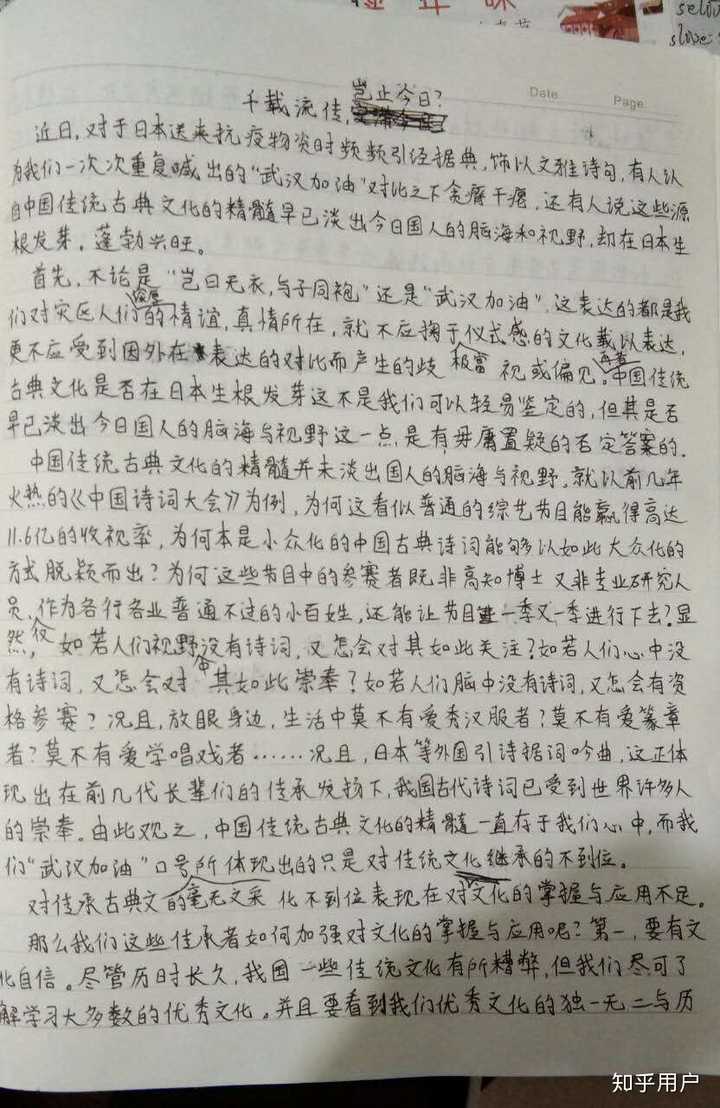 selou
slope
Date
Page
千载流传,岂止今日?
近日,对于日本送来抗疫物资时频频引经据典,饰以文雅诗句,有人认
为我们一次次重复喊出的“武汉加油”对此之下贪瘠干瘪,还有人说这些源
自中国传统古典文化的精髓早已淡出今日国人的脑海和视野,却在日本生
根发芽,蓬勃兴旺。
首先,不论是“岂曰无衣,与子同袍”还是“武汉加油”,这表达的都是我
们对灾区人们深厚的情谊,真情所在,就不应拘于仪式感的文化载以表达,
更不应受到因外在表达的对比而产生的歧视或偏见。再者中国传统
极富
古典文化是否在日本生根发芽这不是我们可以轻易鉴定的,但其是否
早已淡出今日国人的脑海与视野这一点,是有毋庸置疑的否定答案的.
中国传统古典文化的精髓并未淡出国人的脑海与视野,就以前几年
火热的《中国诗词大会》为例,为何这看似普通的综艺节目能赢得高达
11.6亿的收视率,为何本是小众化的中国古典诗词能够以如此大众化的
方式脱颖而出?为何这些节目中的参赛者既非高知博士又非专业研究人
员,作为各行各业普通不过的小百姓,还能让节目一季又一季进行下去?显
然,如若人们视野没有诗词,又怎会对其如此关注?如若人们心中没
有诗词,又怎会对其如此崇奉?如若人们脑中没有诗词,又怎会有资
格参赛?况且,放眼身边,生活中莫不有爱秀汉服者?莫不有爱篆章
者?莫不有爱学唱戏者……况且,日本等外国引诗据词吟曲,这正体
现出在前几代长辈们的传承发扬下,我国古代诗词已受到世界许多人
的崇奉。由此观之,中国传统古典文化的精髓一直存于我们心中,而我
们“武汉加油”口号所体现出的只是对传统文化继承的不到位。
的毫无文采
对传承古典文化不到位表现在对文化的掌握与应用不足。
那么我们这些传承者如何加强对文化的掌握与应用呢?第一,要有文
化自信。尽管历时长久,我国一些传统文化有所糟弊,但我们尽可了
解学习大多数的优秀文化。并且要看到我们优秀文化的独一无二与历
知乎用户